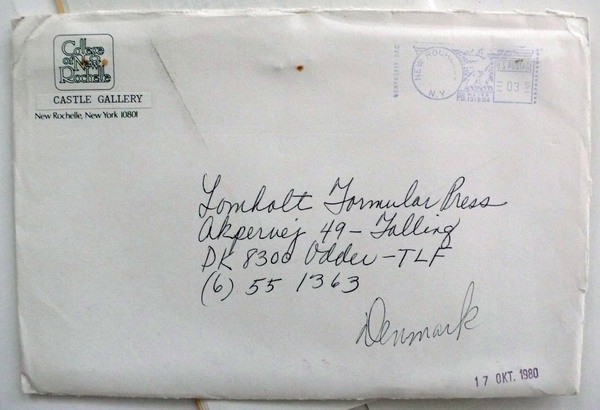 College
of New
Rochelle
CASTLE GALLERY
New Rochelle, New York 10801
NEW ROCHELLE
N.Y.
Lomholt Formular Press
Akpervej 49 - Falling
DK 8300 Odder - TLF
(6) 55 1363
Denmark
17 OKT. 1980